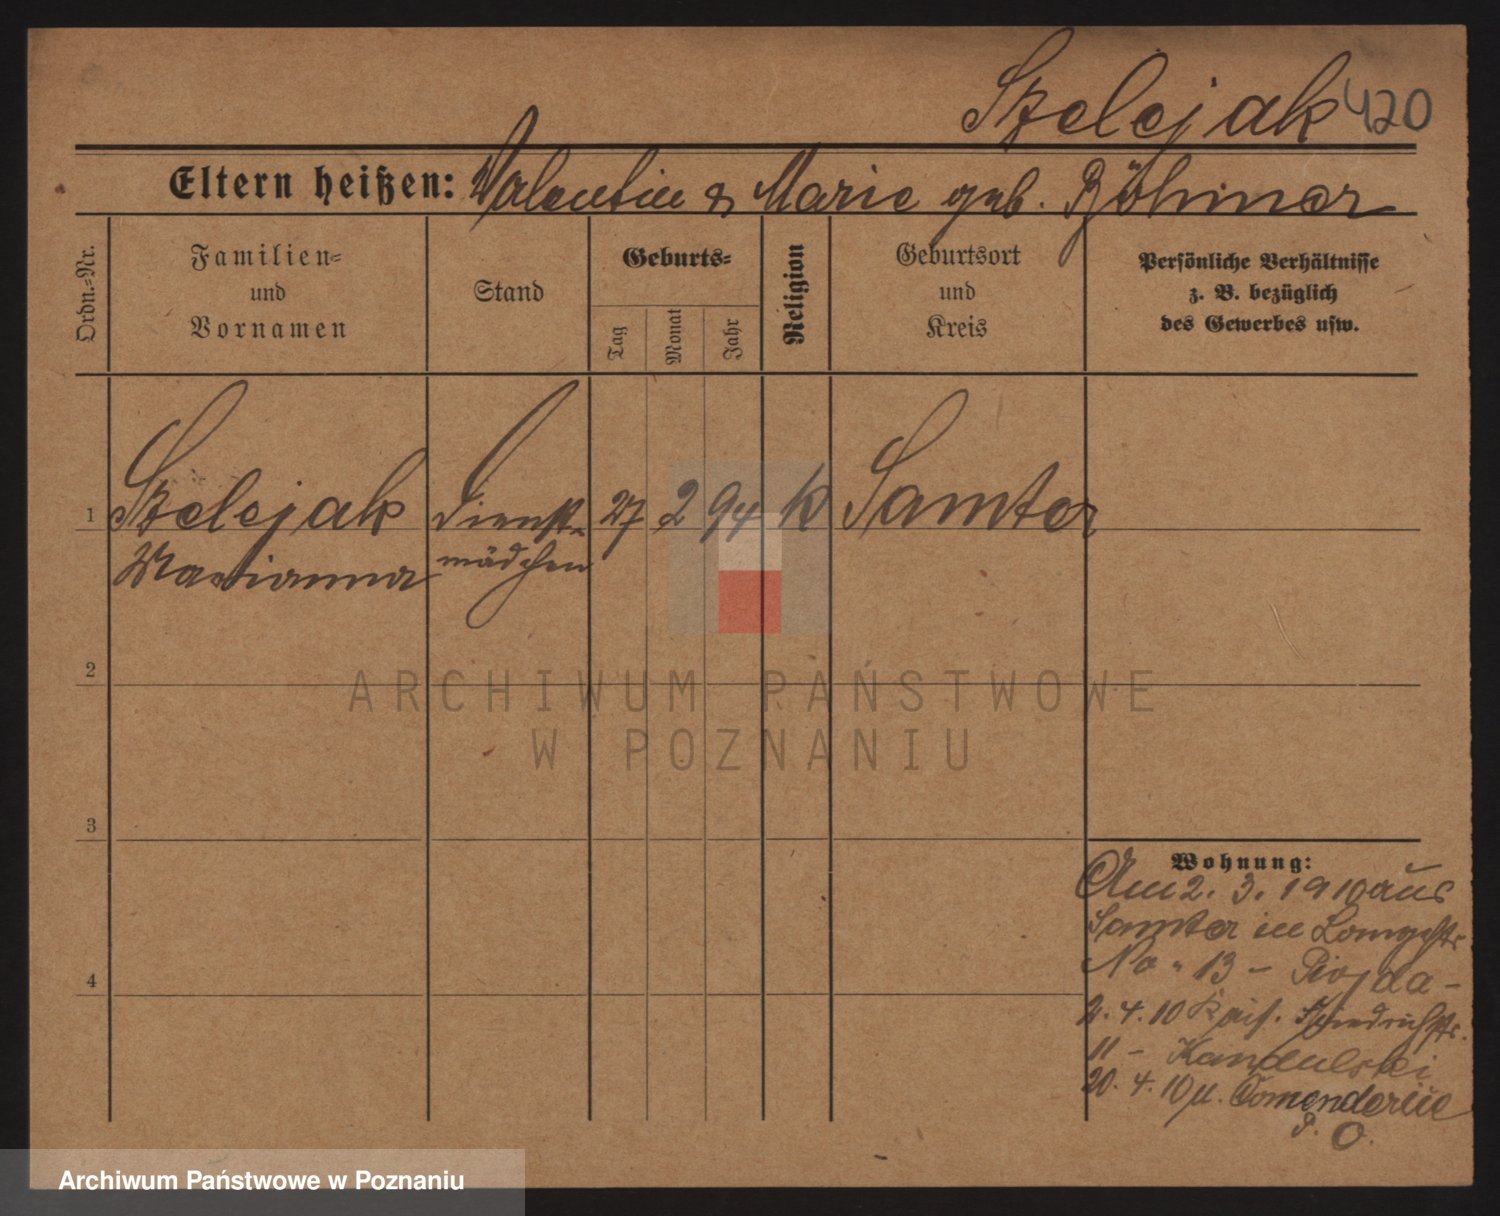 Szelejak 420
Eltern heißen: Valentin & Marie geb. Böhmer
Ordn.-Nr.
Familien-
und
Vornamen
Stand
Geburts-
Tag
Monat
Jahr
Religion
Geburtsort
und
Kreis
Persönliche Verhältnisse
z. B. bezüglich
des Gewerbes usw.
1 Szelejak Dienst- 27 2 94 k Samter
Marianna mädchen
2
3
4
Wohnung:
Am 2. 3. 1910 aus
Samter in
No. 13 –
2. 4. 10 Kais. Friedrichstr.
11 – Kandulski
20. 4. 10 u. Comenderie
P. O.
ARCHIWUM PAŃSTWOWE
W POZNANIU
Archiwum Państwowe w Poznaniu